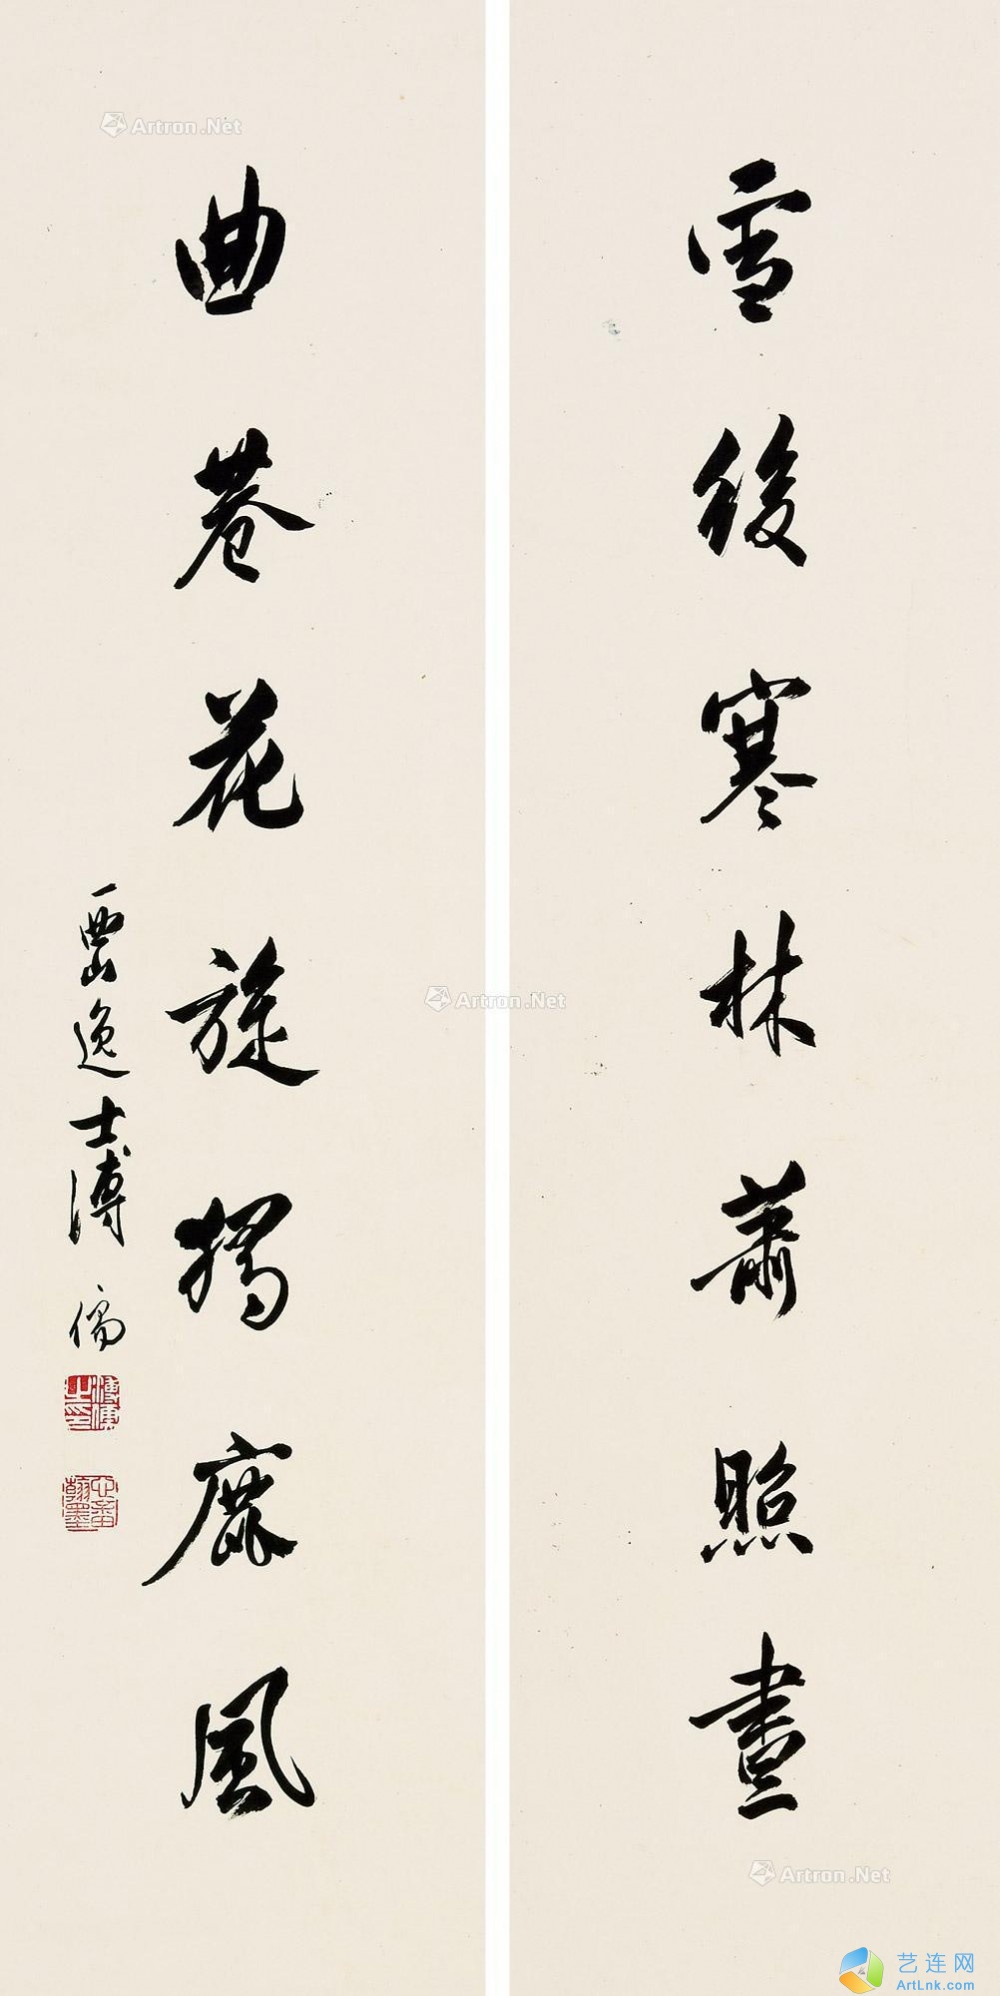 雪後寒林蕭照畫
曲巷花旋獨鹿風
西山逸士溥儒
溥儒之印
心畬翰墨
Artron.Net
Artron.Net
Artron.Net
艺连网
ArtLnk.com